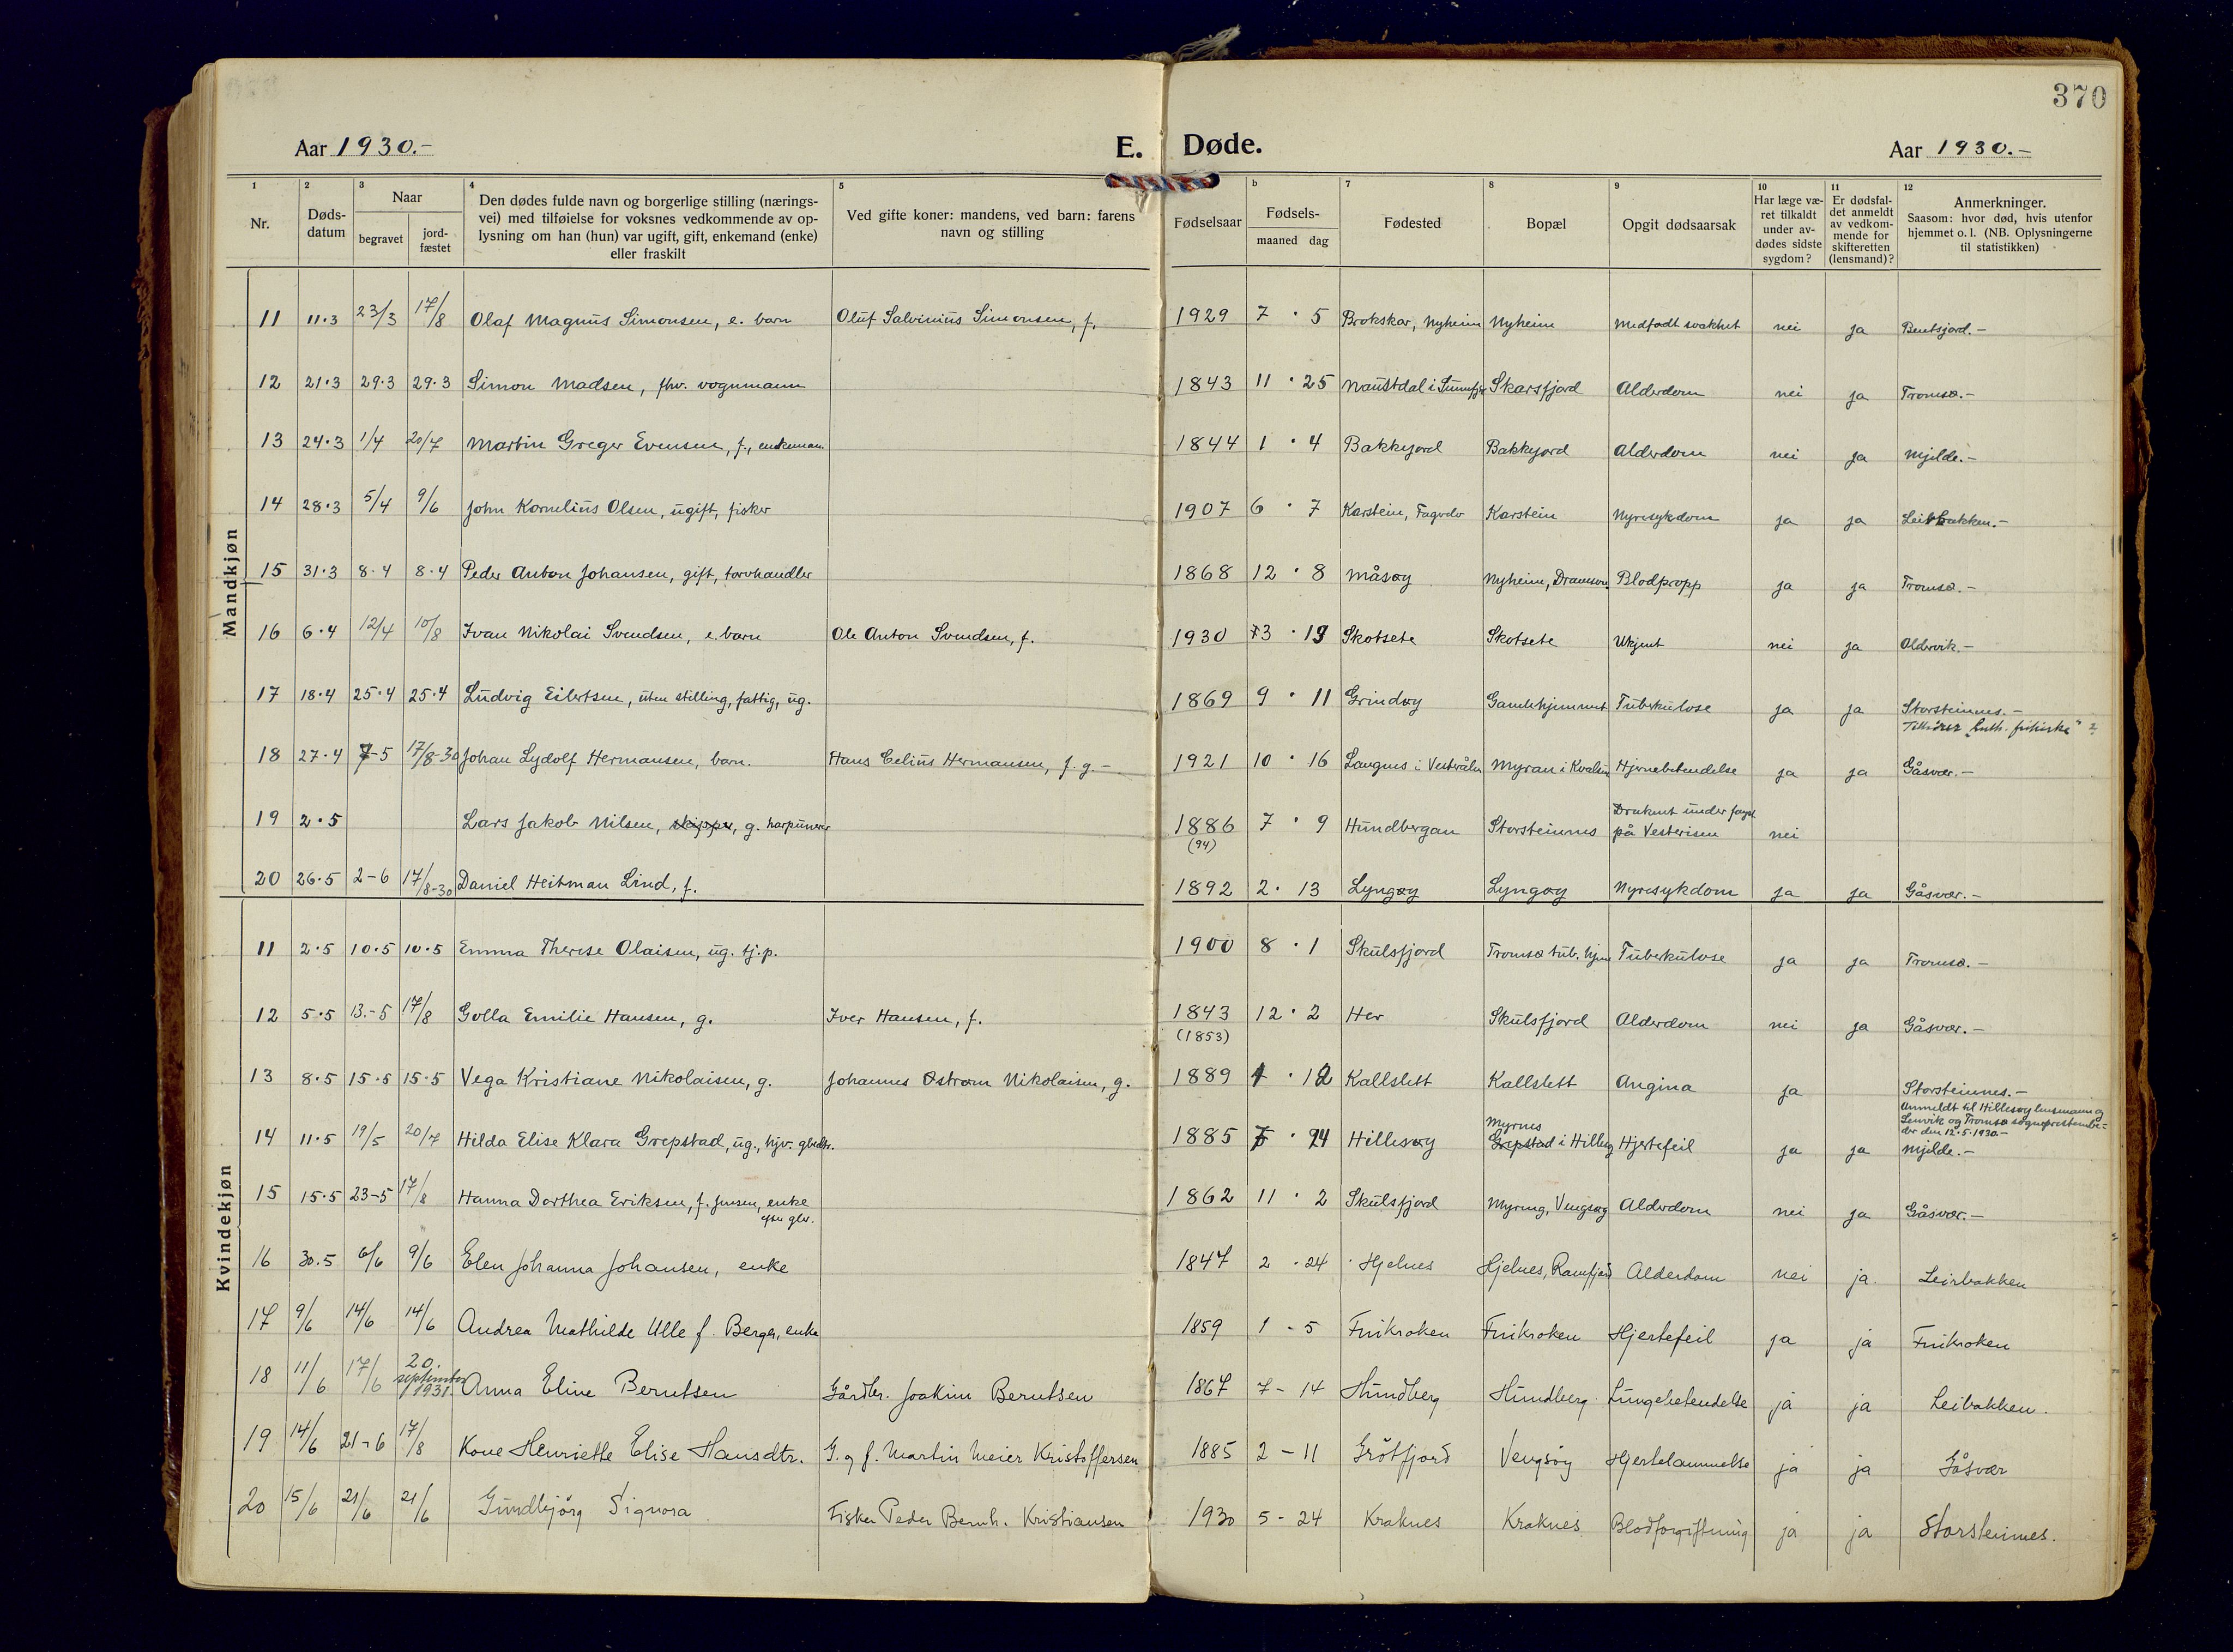 370
Aar 1930.-
E. Døde.
Aar 1930.-
1 2 3 4 5 6 7 8 9 10 11 12
Nr.
Døds-
datum
Naar
begravet
jord-
fæstet
Den dødes fulde navn og borgerlige stilling (nærings-
vei) med tilføielse for voksnes vedkommende av op-
lysning om han (hun) var ugift, gift, enkemand (enke)
eller fraskilt
Ved gifte koner: mandens, ved barn: farens
navn og stilling
Fødselsaar
Fødsels-
maaned dag
Fødested
Bopæl
Opgit dødsaarsak
Har læge væ-
ret tilkaldt
under av-
dødes sidste
sygdom?
Er dødsfal-
det anmeldt
av vedkom-
mende for
skifteretten
(lensmand)?
Anmerkninger.
Saasom: hvor død, hvis utenfor
hjemmet o. l. (NB. Oplysningerne
til statistikken)
Mandkjøn
11 11.3 23/3 17/8 Olaf Magnus Simonsen, e. barn Oluf Salvinius Simonsen, f. 1929 7 · 5 Brokskar, Nyheim Nyheim Medfødt svakhet nei ja Bentsjord.-
12 21.3 29.3 29.3 Simon Madsen, fhv. vognmann 1843 11 · 25 Naustdal i Sunnfj. Skarsfjord Alderdom nei ja Tromsø.-
13 24.3 1/4 20/7 Martin Greger Evensen, f., enkemann 1844 1 · 4 Bakkejord Bakkejord Alderdom nei ja Mjelde.-
14 28.3 5/4 9/6 John Kornelius Olsen, ugift, fisker 1907 6 · 7 Karstein, Karstein Nyresykdom ja ja Leirbakken.-
15 31.3 8.4 8.4 Peder Anton Johansen, gift, torvhandler 1868 12 · 8 Måsøy Nyheim, Dramsvn. Blodpropp ja ja Tromsø.-
16 6.4 12/4 10/8 Ivan Nikolai Svendsen, e. barn Ole Anton Svendsen, f. 1930 3 · 19 Skotsete Skotsete Ukjent nei ja Oldervik.-
17 18.4 25.4 25.4 Ludvig Eilertsen, uten stilling, fattig, ug. 1869 9 · 11 Grindøy Gamlehjemmet Tuberkulose ja ja Storsteinnes.-
Tilhører "Luth. frikirke"
18 27.4 7-5 17/8-30 Johan Lydolf Hermansen, barn. Hans Celius Hermansen, f. g.- 1921 10 · 16 Langnes i Vesterålen Myran i Kvaløen Hjernebetendelse ja ja Gåsvær.-
19 2.5 Lars Jakob Nilsen, skipper, g. harpunerer 1886 7 · 9 Hundbergan Storsteinnes Druknet under fangst
(94) på Vesterisen nei
20 26.5 2-6 17/8-30 Daniel Heitman Lind, f. 1892 2 · 13 Lyngøy Lyngøy Nyresykdom ja ja Gåsvær.-
Kvindekjøn
11 2.5 10.5 10.5 Emma Therese Olaisen, ug. tj.p. 1900 8 · 1 Skulsfjord Tromsø tub. hjem Tuberkulose ja ja Tromsø.-
12 5.5 13.-5 17/8 Golla Emilie Hansen, g. Iver Hansen, f. 1843 12 · 2 Her Skulsfjord Alderdom nei ja Gåsvær.-
(1853)
13 8.5 15.5 15.5 Vega Kristiane Nikolaisen, g. Johannes Østrøm Nikolaisen, g. 1889 1 · 12 Kallslett Kallslett Angina ja Storsteinnes.-
Anmeldt til Hillesøy lensmann og
Lenvik og Tromsø sogneprestembe-
der den 12.5.1930.-
14 11.5 19/5 20/7 Hilda Elise Klara Grepstad, ug., hjv. gbrdtr. 1885 5 · 24 Hillesøy Myrnes
Grepstad i Hillesøy Hjertefeil ja ja Mjelde.-
15 15.5 23-5 17/8 Hanna Dorthea Eriksen, f. Jensen, enke
efter gbr. 1862 11 · 2 Skulsfjord Myreng, Vengsøy Alderdom nei ja Gåsvær.-
16 30.5 6/6 9/6 Elen Johanna Johansen, enke 1847 2 · 24 Hjelnes Hjelnes, Ramfjord Alderdom nei ja Leirbakken
17 9/6 14/6 14/6 Andrea Mathilde Ulle f. Berger, enke 1859 1 - 5 Finkroken Finkroken Hjertefeil ja ja Finkroken
18 11/6 17/6 20. september 1931. Anna Eline Berntsen Gårdbr. Joakim Berntsen 1867 7 - 14 Hundberg Hundberg Lungebetendelse ja ja Leibakken.
19 14/6 21-6 17/8 Kone Henriette Elise Hansdtr. G. og f. Martin Meier Kristoffersen 1885 2 - 11 Grötfjord Vengsöy Hjertelammelse ja ja Gåsvær
20 15/6 21/6 21/6 Gundbjörg Signora Fisker Peder Bernh. Kristiansen 1930 5 - 24 Kraknes Kraknes Blodforgiftning ja ja Storsteinnes.